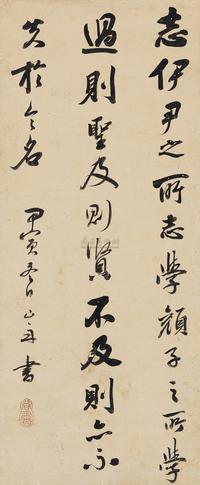 志伊尹之所志學顏子之所學
過則聖及則賢不及則亦不
失於令名 甲寅冬日 書